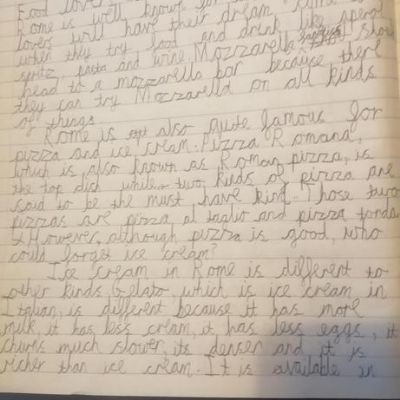 Food love
Rome is well known for
lovers will have their dream
when they try food and drink like aperol
spritz, pasta and wine. Mozzarella shou
head to a mozzarella bar because there
they can try Mozzarella on all kinds
of things.
Rome is also quite famous for
pizza and ice cream. Pizza Romana,
which is also known as Roman pizza, is
the top dish while two kinds of pizza are
said to be the must have kind. Those two
pizzas are pizza al taglio and pizza tonda
However, although pizza is good, who
could forget ice cream?
Ice cream in Rome is different to
other kinds. Gelato which is ice cream in
Italian, is different because it has more
milk, it has less cream, it has less eggs, it
churns much slower, its denser and it is
richer than ice cream. It is available in